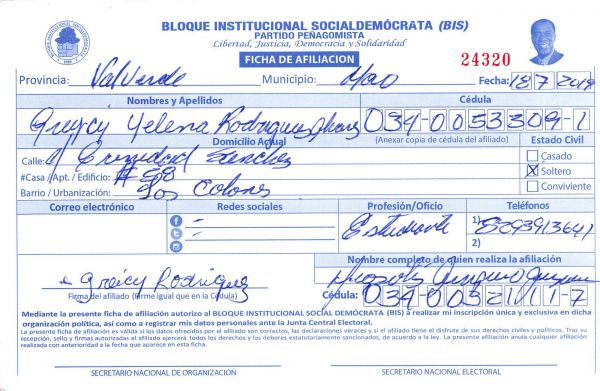 BLOQUE INSTITUCIONAL SOCIALDEMÓCRATA (BIS)
PARTIDO PEÑAGOMISTA
Libertad, Justicia, Democracia y Solidaridad
FICHA DE AFILIACION
24320
Provincia: Valverde Municipio: Mao Fecha: 18 7 2019
Nombres y Apellidos Cédula
Greycy Yelena Rodriguez 034-0053309-1
Domicilio Actual (Anexar copia de cédula del afiliado) Estado Civil
Calle: Trinidad Sanchez Casado
#Casa / Apt. / Edificio: #58 X Soltero
Barrio / Urbanización: Los Colones Conviviente
Correo electrónico Redes sociales Profesión/Oficio Teléfonos
Estudiante 1) 8293913641
2)
Greicy Rodriguez Nombre completo de quien realiza la afiliación
Firma del afiliado (Firme igual que en la Cédula) Cédula: 034-0032111-7
Mediante la presente ficha de afiliación autorizo al BLOQUE INSTITUCIONAL SOCIAL DEMÓCRATA (BIS) a realizar mi inscripción única y exclusiva en dicha
organización política, así como a registrar mis datos personales ante la Junta Central Electoral.
La presente ficha de afiliación es válida si los datos ofrecidos por el afiliado son correctos, las declaraciones veraces y si el titular disfruta de sus derechos civiles y políticos. Tras su
recepción, sello y firmas autorizadas el afiliado ejercerá todos los derechos y los deberes estatutariamente sancionados, de acuerdo a la ley. La presente afiliación anula cualquier afiliación
realizada con anterioridad a la fecha que aparece en esta ficha.
SECRETARIO NACIONAL DE ORGANIZACIÓN SECRETARIO NACIONAL ELECTORAL